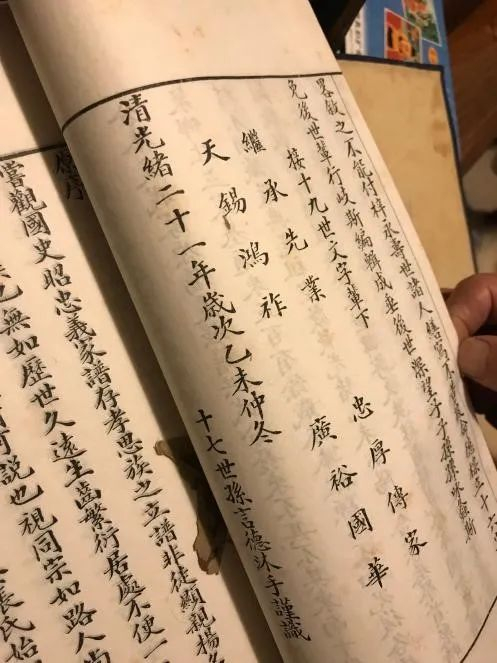 之不能付梓永壽世諸人繕寫不
免後世輩行歧斯編輯成垂後世深望子子孫孫
接十九世文字輩下
繼承先業 忠厚傳家
天錫鴻祚 廣裕國華
清光緒二十一年歲次乙未仲冬
十七世孫言德沐手謹識
原序
嘗觀國史昭忠義家譜存孝思族之立譜非徒顯親揚
已無如歷世久遠生齒繁衍居處不便一
可說也視同宗如路人尚
張氏始